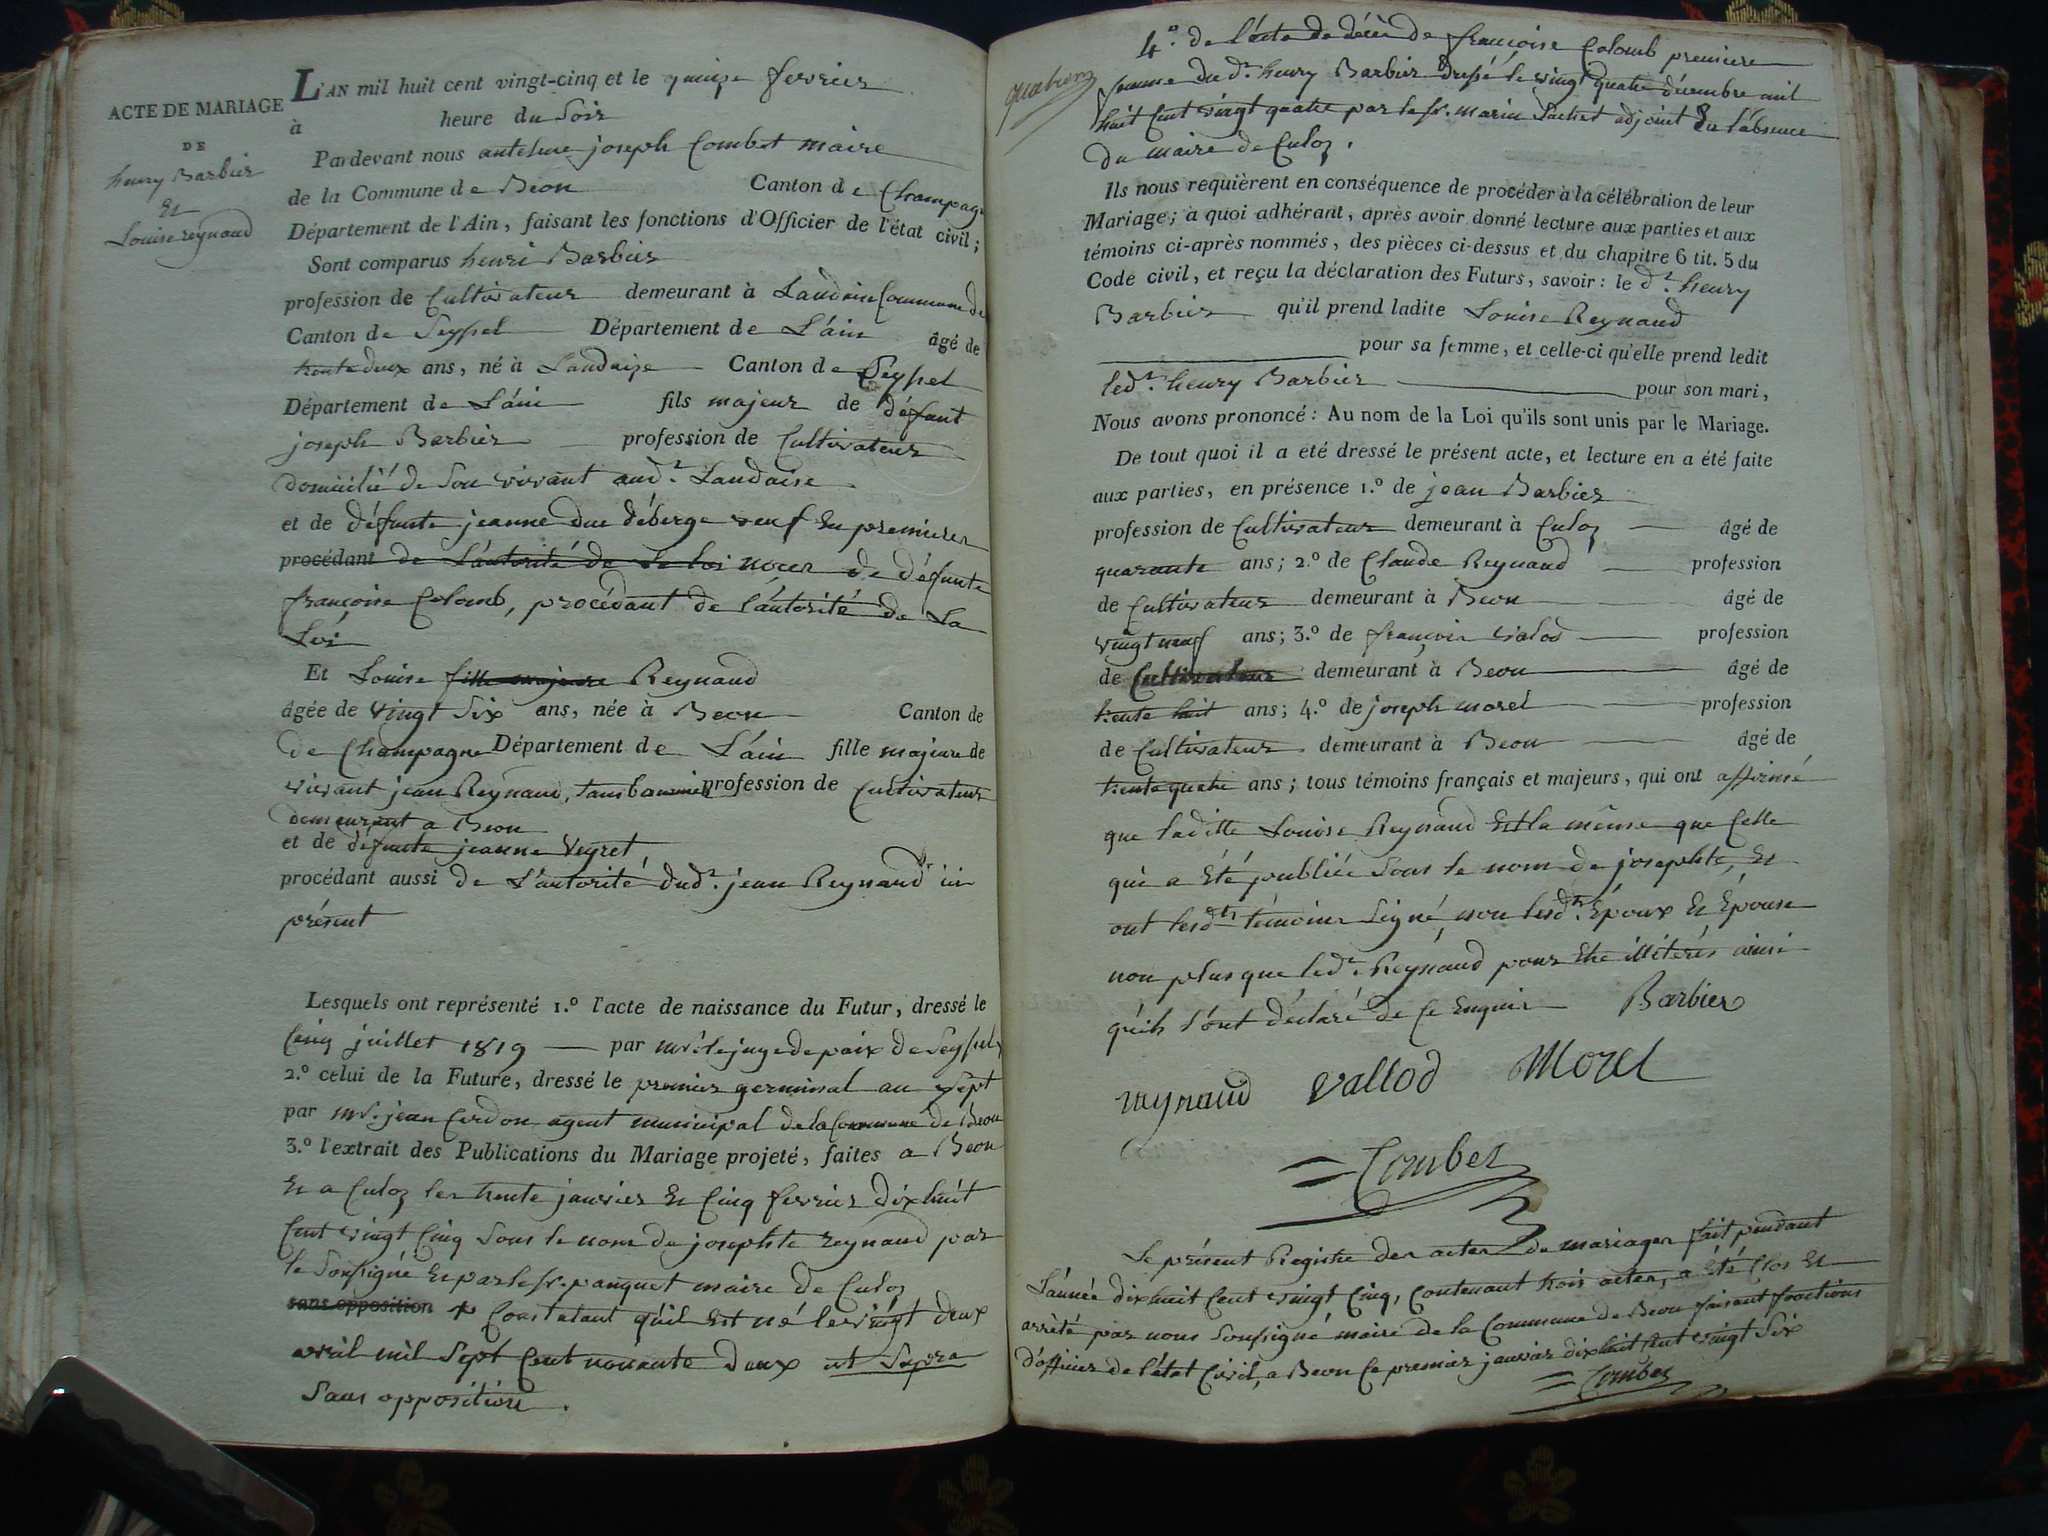 ACTE DE MARIAGE
DE
henry Barbier
Et
Louise reynaud
L'AN mil huit cent vingt-cinq et le quinze fevrier
à heure du Soir
Pardevant nous antelme joseph Combet maire
de la Commune de Beon Canton de Champagne
Département de l'Ain, faisant les fonctions d'Officier de l'état civil;
Sont comparus henri Barbier
profession de Cultivateur demeurant à Landaise Commune de
Canton de Seyssel Département de L'ain âgé de
trente deux ans, né à Landaize Canton de Seyssel
Département de L'ain fils majeur de défunt
joseph Barbier profession de Cultivateur
domicilié de Son vivant aud.t Landaise
et de défunte jeanne veuf En premieres
procédant de L'autorité de la loi noces de défunte
françoise Colomb, procédant de l'autorité de La
Loi
Et Louise fille majeure Reynaud
âgée de vingt Six ans, née à Beon Canton de
de Champagne Département de L'ain fille majeure de
vivant jean Reynaud, profession de Cultivateur
demeurant a Beon
et de défunte jeanne Veyret
procédant aussi de L'autorité dud.t jean Reynaud ici
présent
Lesquels ont représenté 1.º l'acte de naissance du Futur, dressé le
Cinq juillet 1819 par mr. le juge de paix de Seyssel
2.º celui de la Future, dressé le premier germinal an Sept
par mr. jean Cerdon agent municipal de la Commune de Beon
3.º l'extrait des Publications du Mariage projeté, faites a Beon
Et a Culoz les trente janvier Et Cinq fevrier dix huit
Cent vingt Cinq Sous le nom de josephte reynaud par
le Soussigné Et par le sr. panquet maire de Culoz
sans opposition + Constatant qu'il Est né le vingt deux
avril mil Sept Cent nonante deux ut Supra
Sans opposition.
4.º de l'acte de décès de françoise Colomb premiere
femme du d.t henry Barbier dressé le vingt quatre décembre mil
huit Cent vingt quatre par le sr. marin adjoint En l'absence
du maire de Culoz.
Ils nous requièrent en conséquence de procéder à la célébration de leur
Mariage; à quoi adhérant, après avoir donné lecture aux parties et aux
témoins ci-après nommés, des pièces ci-dessus et du chapitre 6 tit. 5 du
Code civil, et reçu la déclaration des Futurs, savoir: le d.t henry
Barbier qu'il prend ladite Louise Reynaud
pour sa femme, et celle-ci qu'elle prend ledit
led.t henry Barbier pour son mari,
Nous avons prononcé: Au nom de la Loi qu'ils sont unis par le Mariage.
De tout quoi il a été dressé le présent acte, et lecture en a été faite
aux parties, en présence 1.º de jean Barbier
profession de Cultivateur demeurant à Culoz âgé de
quarante ans; 2.º de Claude Reynaud profession
de Cultivateur demeurant à Beon âgé de
vingt neuf ans; 3.º de françois valod profession
de Cultivateur demeurant à Beon âgé de
trente huit ans; 4.º de joseph morel profession
de Cultivateur demeurant à Beon âgé de
trente quatre ans; tous témoins français et majeurs, qui ont affirmé
que laditte Louise Reynaud Est la même que Celle
qui a Eté publiée Sous le nom de josephte, Et
ont lesdts témoins Signé, non lesdts Epoux Et Epouse
non plus que led.t Reynaud pour Etre illiterés ainsi
qu'ils l'ont déclaré de Ce Enquis Barbier
reynaud vallod Morel
Combet
Le présent Registre des actes de mariages fait pendant
L'année dix huit Cent vingt Cinq, Contenant trois actes, a Eté Clos Et
arrêté par nous Soussigné maire de la Commune de Beon faisant fonctions
d'officier de l'état Civil, a Beon Ce premier janvier dix huit Cent vingt Six
Combet